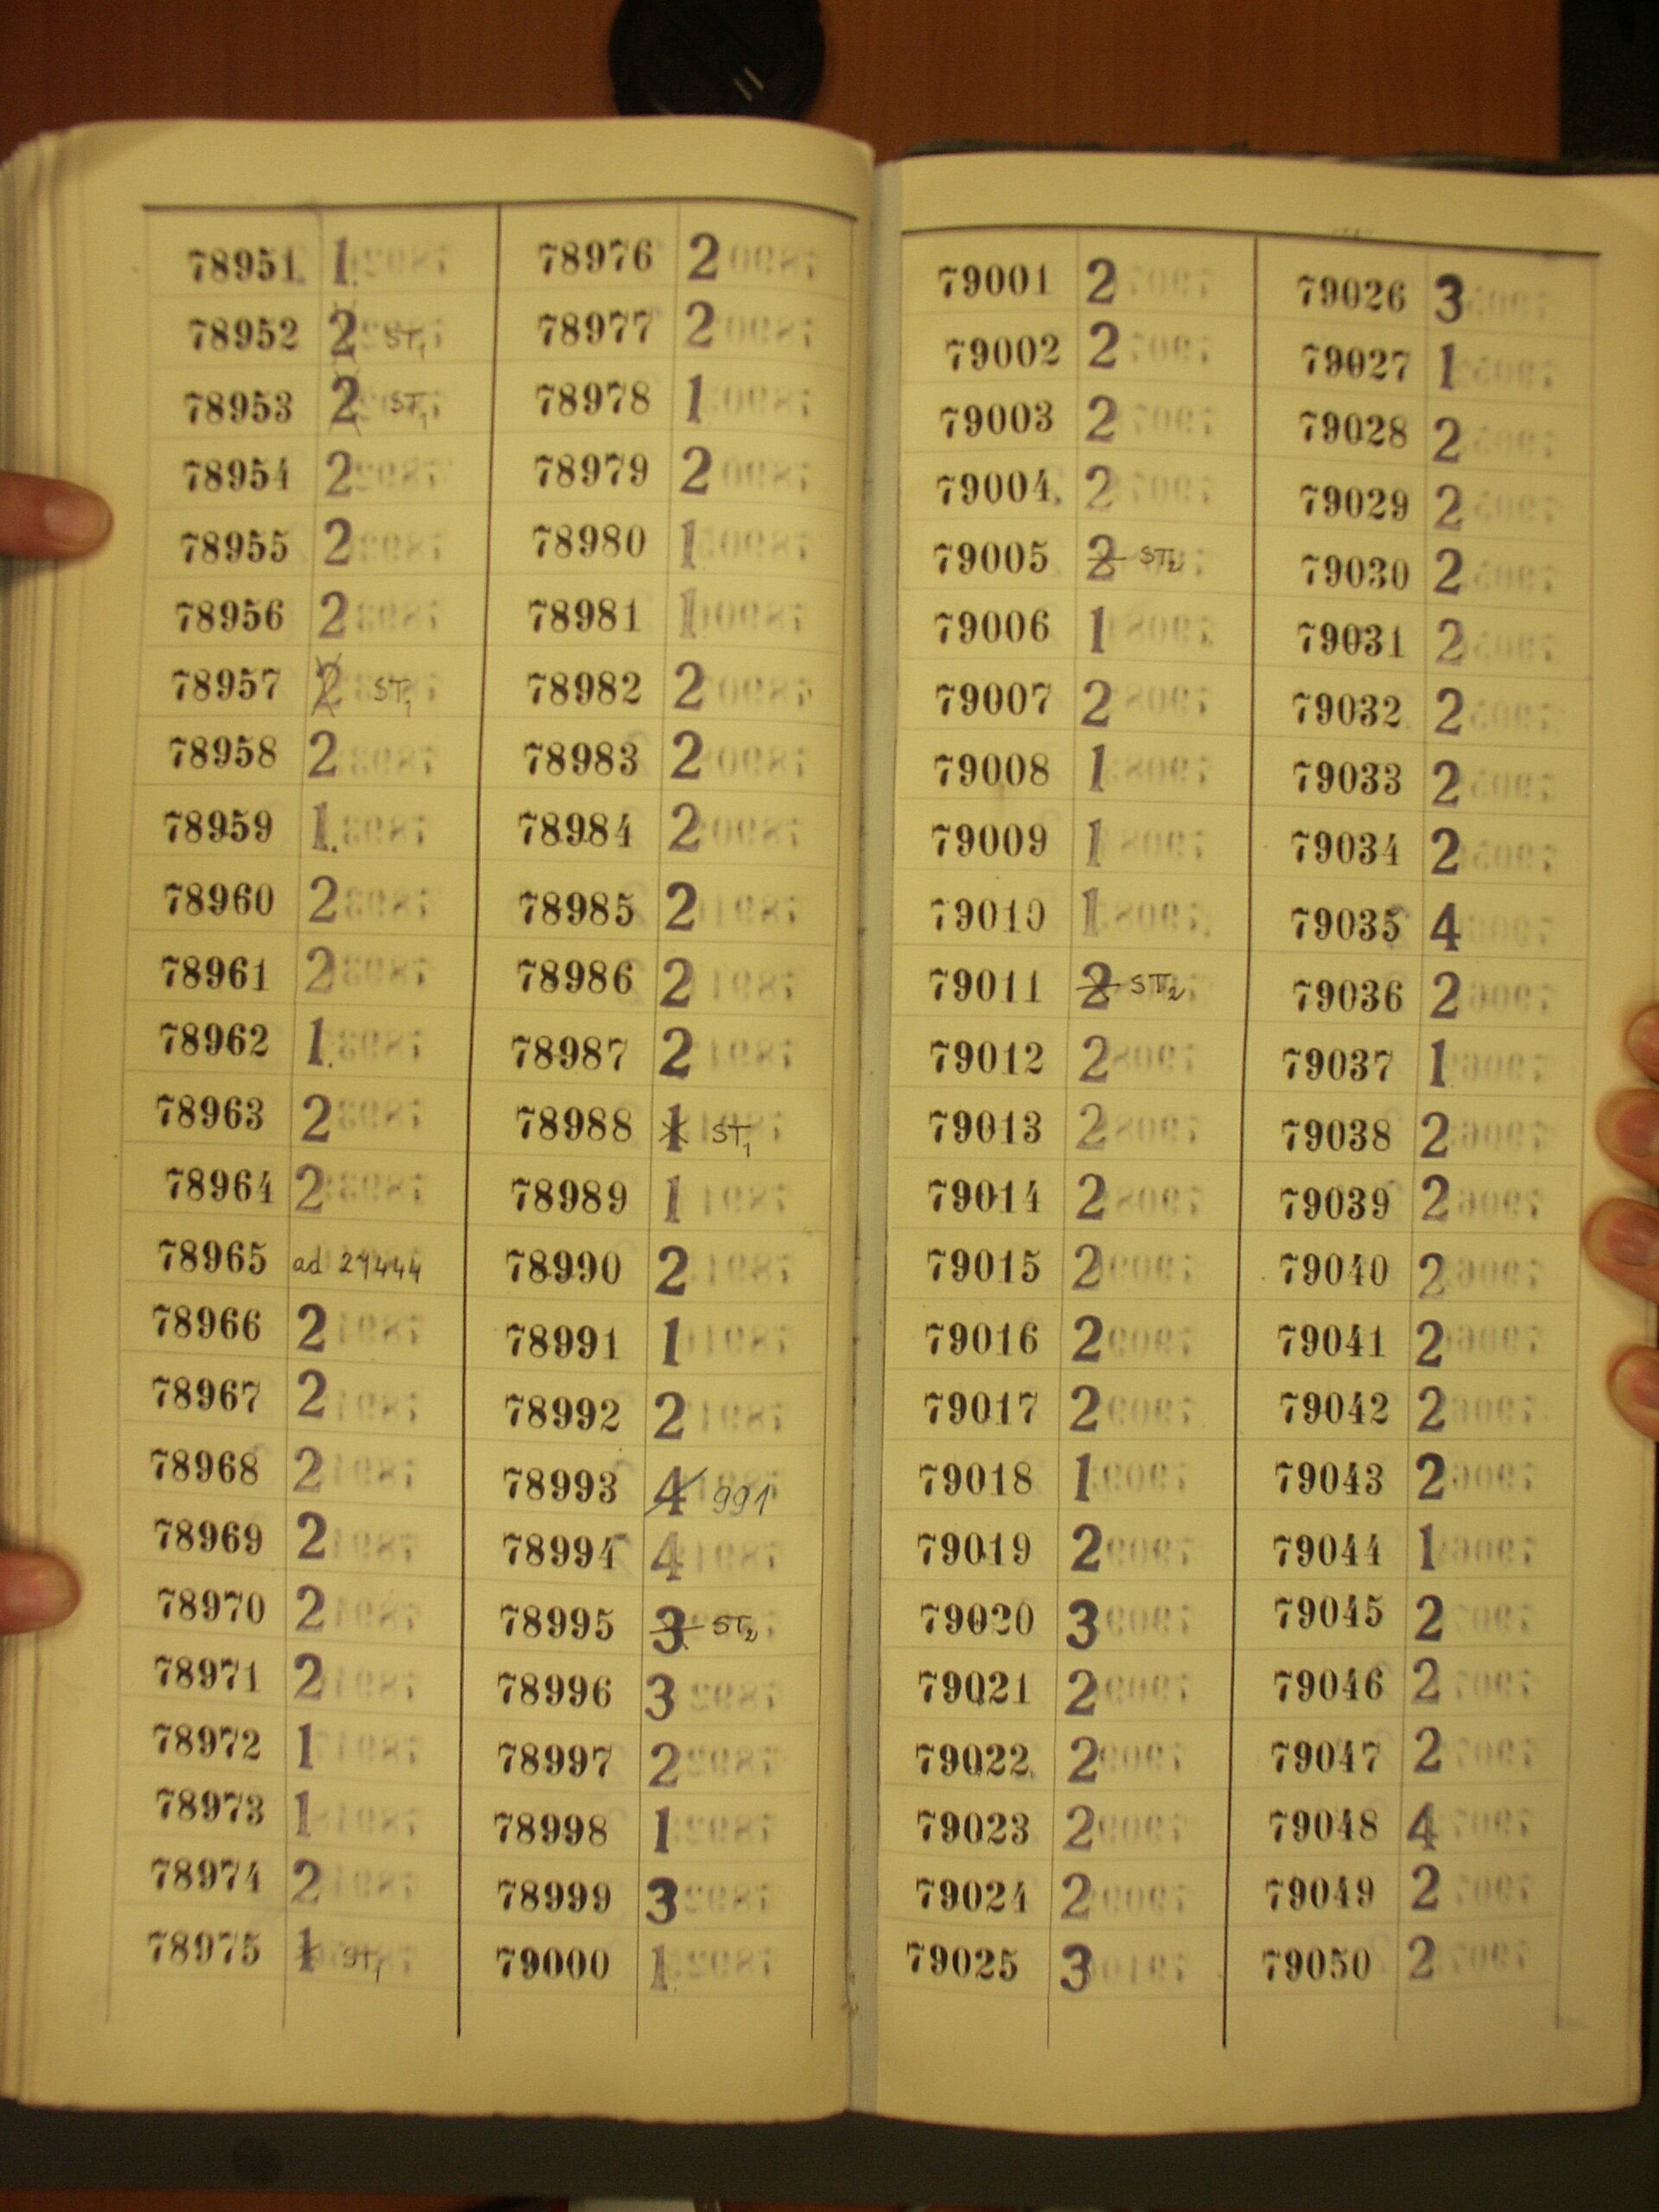 78951 1
78952 2 ST1
78953 2 ST1
78954 2
78955 2
78956 2
78957 2 ST1
78958 2
78959 1
78960 2
78961 2
78962 1
78963 2
78964 2
78965 ad 27444
78966 2
78967 2
78968 2
78969 2
78970 2
78971 2
78972 1
78973 1
78974 2
78975 1 ST1
78976 2
78977 2
78978 1
78979 2
78980 1
78981 1
78982 2
78983 2
78984 2
78985 2
78986 2
78987 2
78988 1 ST1
78989 1
78990 2
78991 1
78992 2
78993 4 991
78994 4
78995 3 ST2
78996 3
78997 2
78998 1
78999 3
79000 1
79001 2
79002 2
79003 2
79004 2
79005 2 ST2
79006 1
79007 2
79008 1
79009 1
79010 1
79011 2 ST2
79012 2
79013 2
79014 2
79015 2
79016 2
79017 2
79018 1
79019 2
79020 3
79021 2
79022 2
79023 2
79024 2
79025 3
79026 3
79027 1
79028 2
79029 2
79030 2
79031 2
79032 2
79033 2
79034 2
79035 4
79036 2
79037 1
79038 2
79039 2
79040 2
79041 2
79042 2
79043 2
79044 1
79045 2
79046 2
79047 2
79048 4
79049 2
79050 2